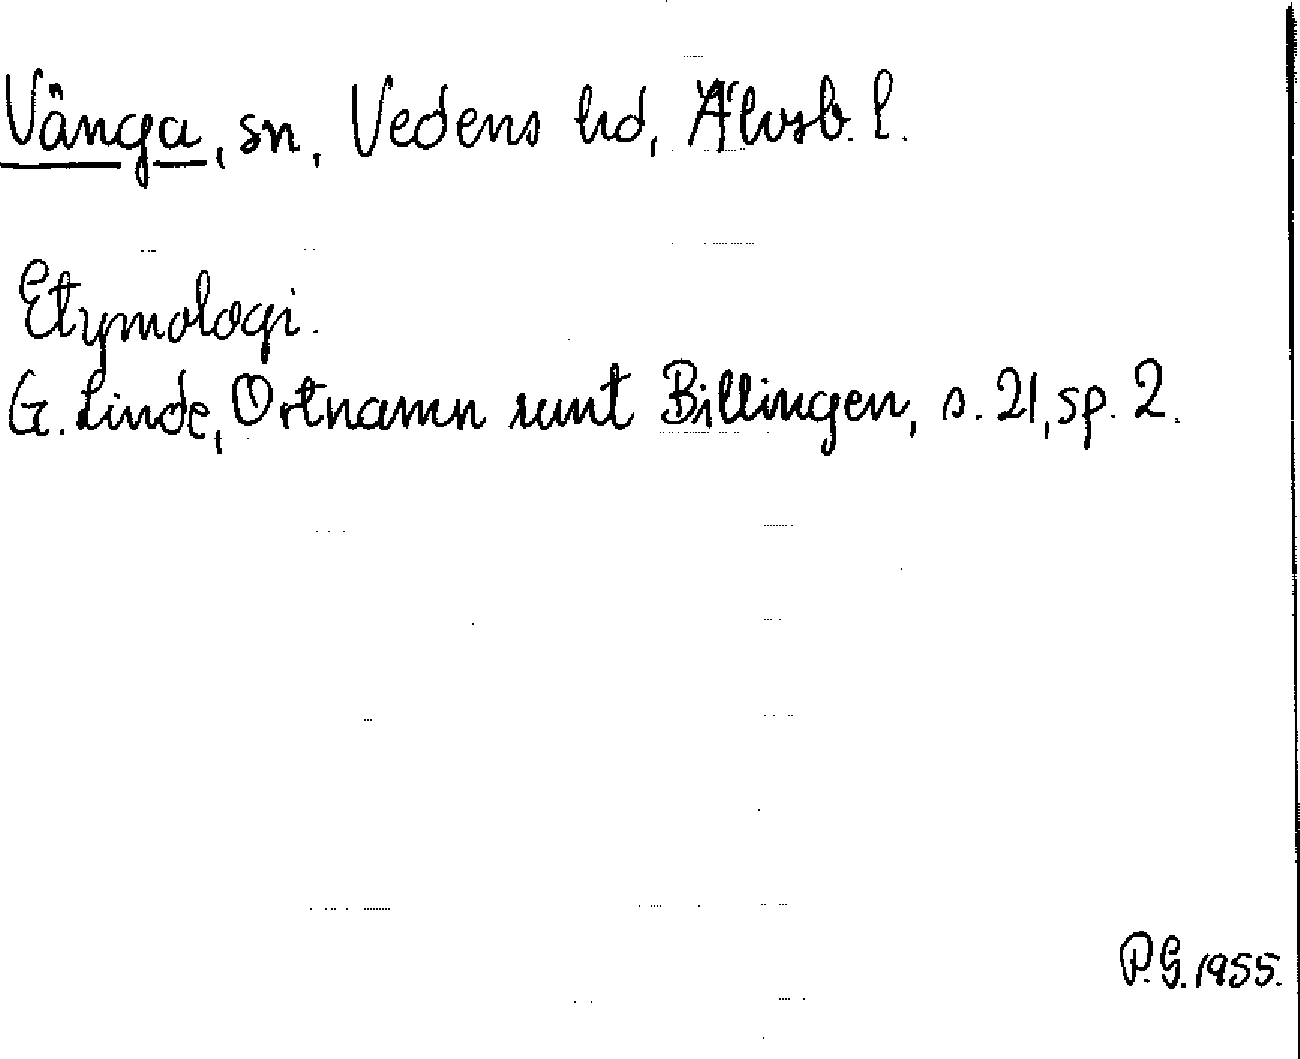 Vänga, sn, Vedens hd, Älvsb. l.
Etymologi.
G. Linde, Ortnamn runt Billingen, s. 21, sp. 2.
P.G. 1955.